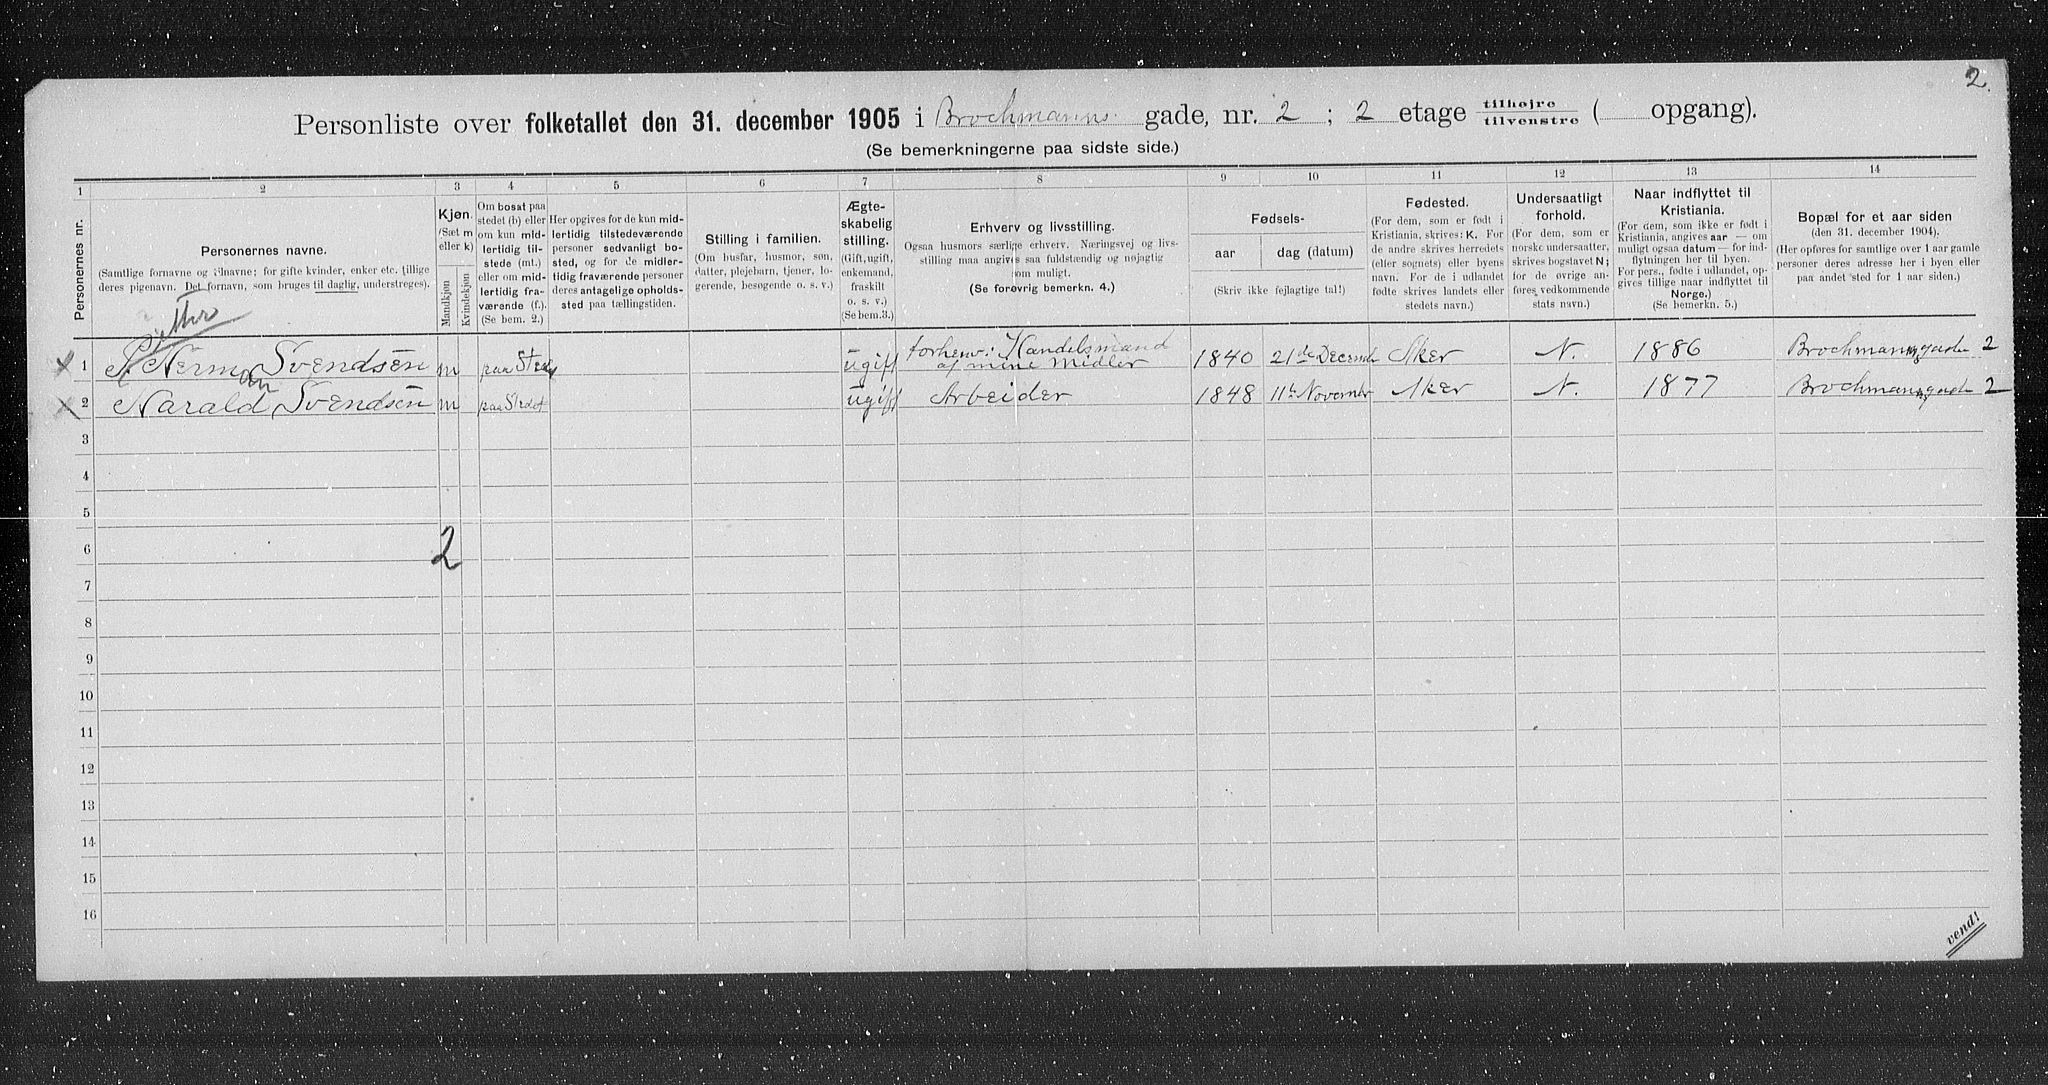 2.
Personliste over folketallet den 31. december 1905 i Brochmanns gade, nr. 2 ; 2 etage tilhøjre tilvenstre ( opgang).
(Se bemerkningerne paa sidste side.)
1 2 3 4 5 6 7 8 9 10 11 12 13 14
Personernes nr.
Personernes navne.
(Samtlige fornavne og tilnavne; for gifte kvinder, enker etc. tillige
deres pigenavn. Det fornavn, som bruges til daglig, understreges).
Kjøn.
(Sæt m
eller k)
Mandkjøn
Kvindekjøn
Om bosat paa
stedet (b) eller
om kun mid-
lertidig til-
stede (mt.)
eller om mid-
lertidig fra-
værende (f.).
(Se bem. 2.)
Her opgives for de kun mid-
lertidig tilstedeværende
personer sedvanligt bo-
sted, og for de midler-
tidig fraværende personer
deres antagelige opholds-
sted paa tællingstiden.
Stilling i familien.
(Om husfar, husmor, søn,
datter, plejebarn, tjener, lo-
gerende, besøgende o. s. v.)
Ægte-
skabelig
stilling.
(Gift, ugift,
enkemand,
fraskilt
o. s. v.)
(Se bem.3.)
Erhverv og livsstilling.
Ogsaa husmors særlige erhverv. Næringsvej og livs-
stilling maa angives saa fuldstændig og nøjagtig
som muligt.
(Se forøvrig bemerkn. 4.)
Fødsels-
aar
dag (datum)
(Skriv ikke fejlagtige tal!)
Fødested.
(For dem, som er født i
Kristiania, skrives: K. For
de andre skrives herredets
(eller sognets) eller byens
navn. For de i udlandet
fødte skrives landets eller
stedets navn.)
Undersaatligt
forhold.
(For dem, som er
norske undersaatter,
skrives bogstavet N;
for de øvrige an-
føres vedkommende
stats navn.)
Naar indflyttet til
Kristiania.
(For dem, som ikke er født i
Kristiania, angives aar — om
muligt ogsaa datum — for ind-
flytningen her til byen.
For pers., fødte i udlandet, op-
gives tillige naar indflyttet til
Norge.)
(Se bemerkn. 5.)
Bopæl for et aar siden
(den 31. december 1904).
(Her opføres for samtlige over 1 aar gamle
personer deres adresse her i byen eller
paa andet sted for 1 aar siden.)
1 Herman Svendsen m paa Sted ugift forhenv: Handelsmand af mine Midler 1840 21de Decemb Aker N. 1886 Brochmannsgade 2
2 Harald Svendsen m paa Stedet ugift Arbeider 1848 11te Novembr Aker N. 1877 Brochmannsgade 2
3
4
5
6
2
7
8
9
10
11
12
13
14
15
16
vend!